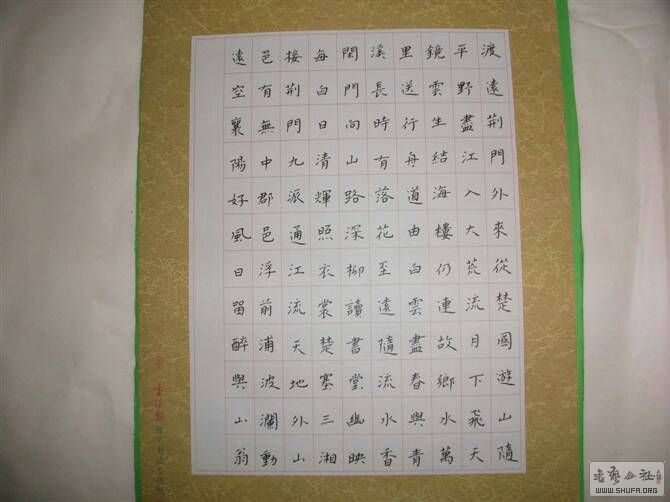 渡遠荊門外來從楚國遊山隨
平野盡江入大荒流月下飛天
鏡雲生結海樓仍連故鄉水萬
里送行舟道由白雲盡春與青
溪長時有落花至遠隨流水香
閑門向山路深柳讀書堂幽映
每白日清輝照衣裳楚塞三湘
接荊門九派通江流天地外山
色有無中郡邑浮前浦波瀾動
遠空襄陽好風日留醉與山翁
WWW.SHUFA.ORG